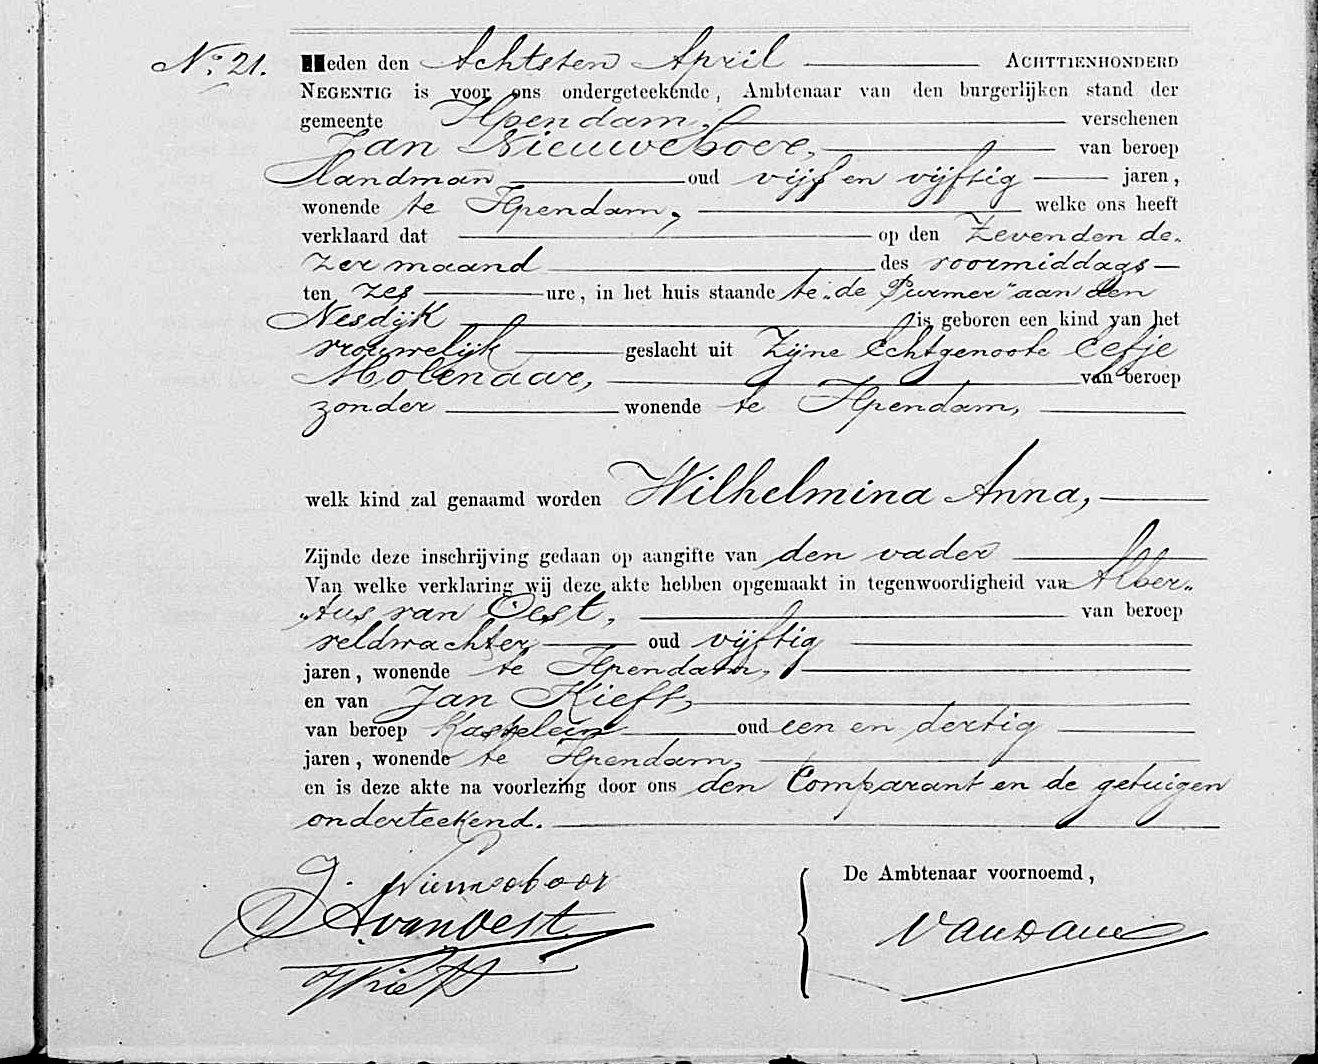 No. 21. Heden den Achtsten April ACHTTIENHONDERD
NEGENTIG is voor ons ondergeteekende, Ambtenaar van den burgerlijken stand der
gemeente Ilpendam, verschenen
Jan Nieuweboer, van beroep
Landman oud vijf en vijftig jaren,
wonende te Ilpendam, welke ons heeft
verklaard dat op den Zevenden de-
zer maand des voormiddags
ten zes ure, in het huis staande te „de Purmer” aan den
Nesdijk is geboren een kind van het
vrouwelijk geslacht uit Zijne Echtgenoote Eefje
Molenaar, van beroep
zonder wonende te Ilpendam,
welk kind zal genaamd worden Wilhelmina Anna,
Zijnde deze inschrijving gedaan op aangifte van den vader
Van welke verklaring wij deze akte hebben opgemaakt in tegenwoordigheid van Alber„
„tus van Oest, van beroep
veldwachter oud vijftig
jaren, wonende te Ilpendam,
en van Jan Kieft,
van beroep Kastelein oud een en dertig
jaren, wonende te Ilpendam,
en is deze akte na voorlezing door ons den Comparant en de getuigen
onderteekend.
De Ambtenaar voornoemd,
J. Nieuweboer
A van Oest
Van Dam
J Kieft